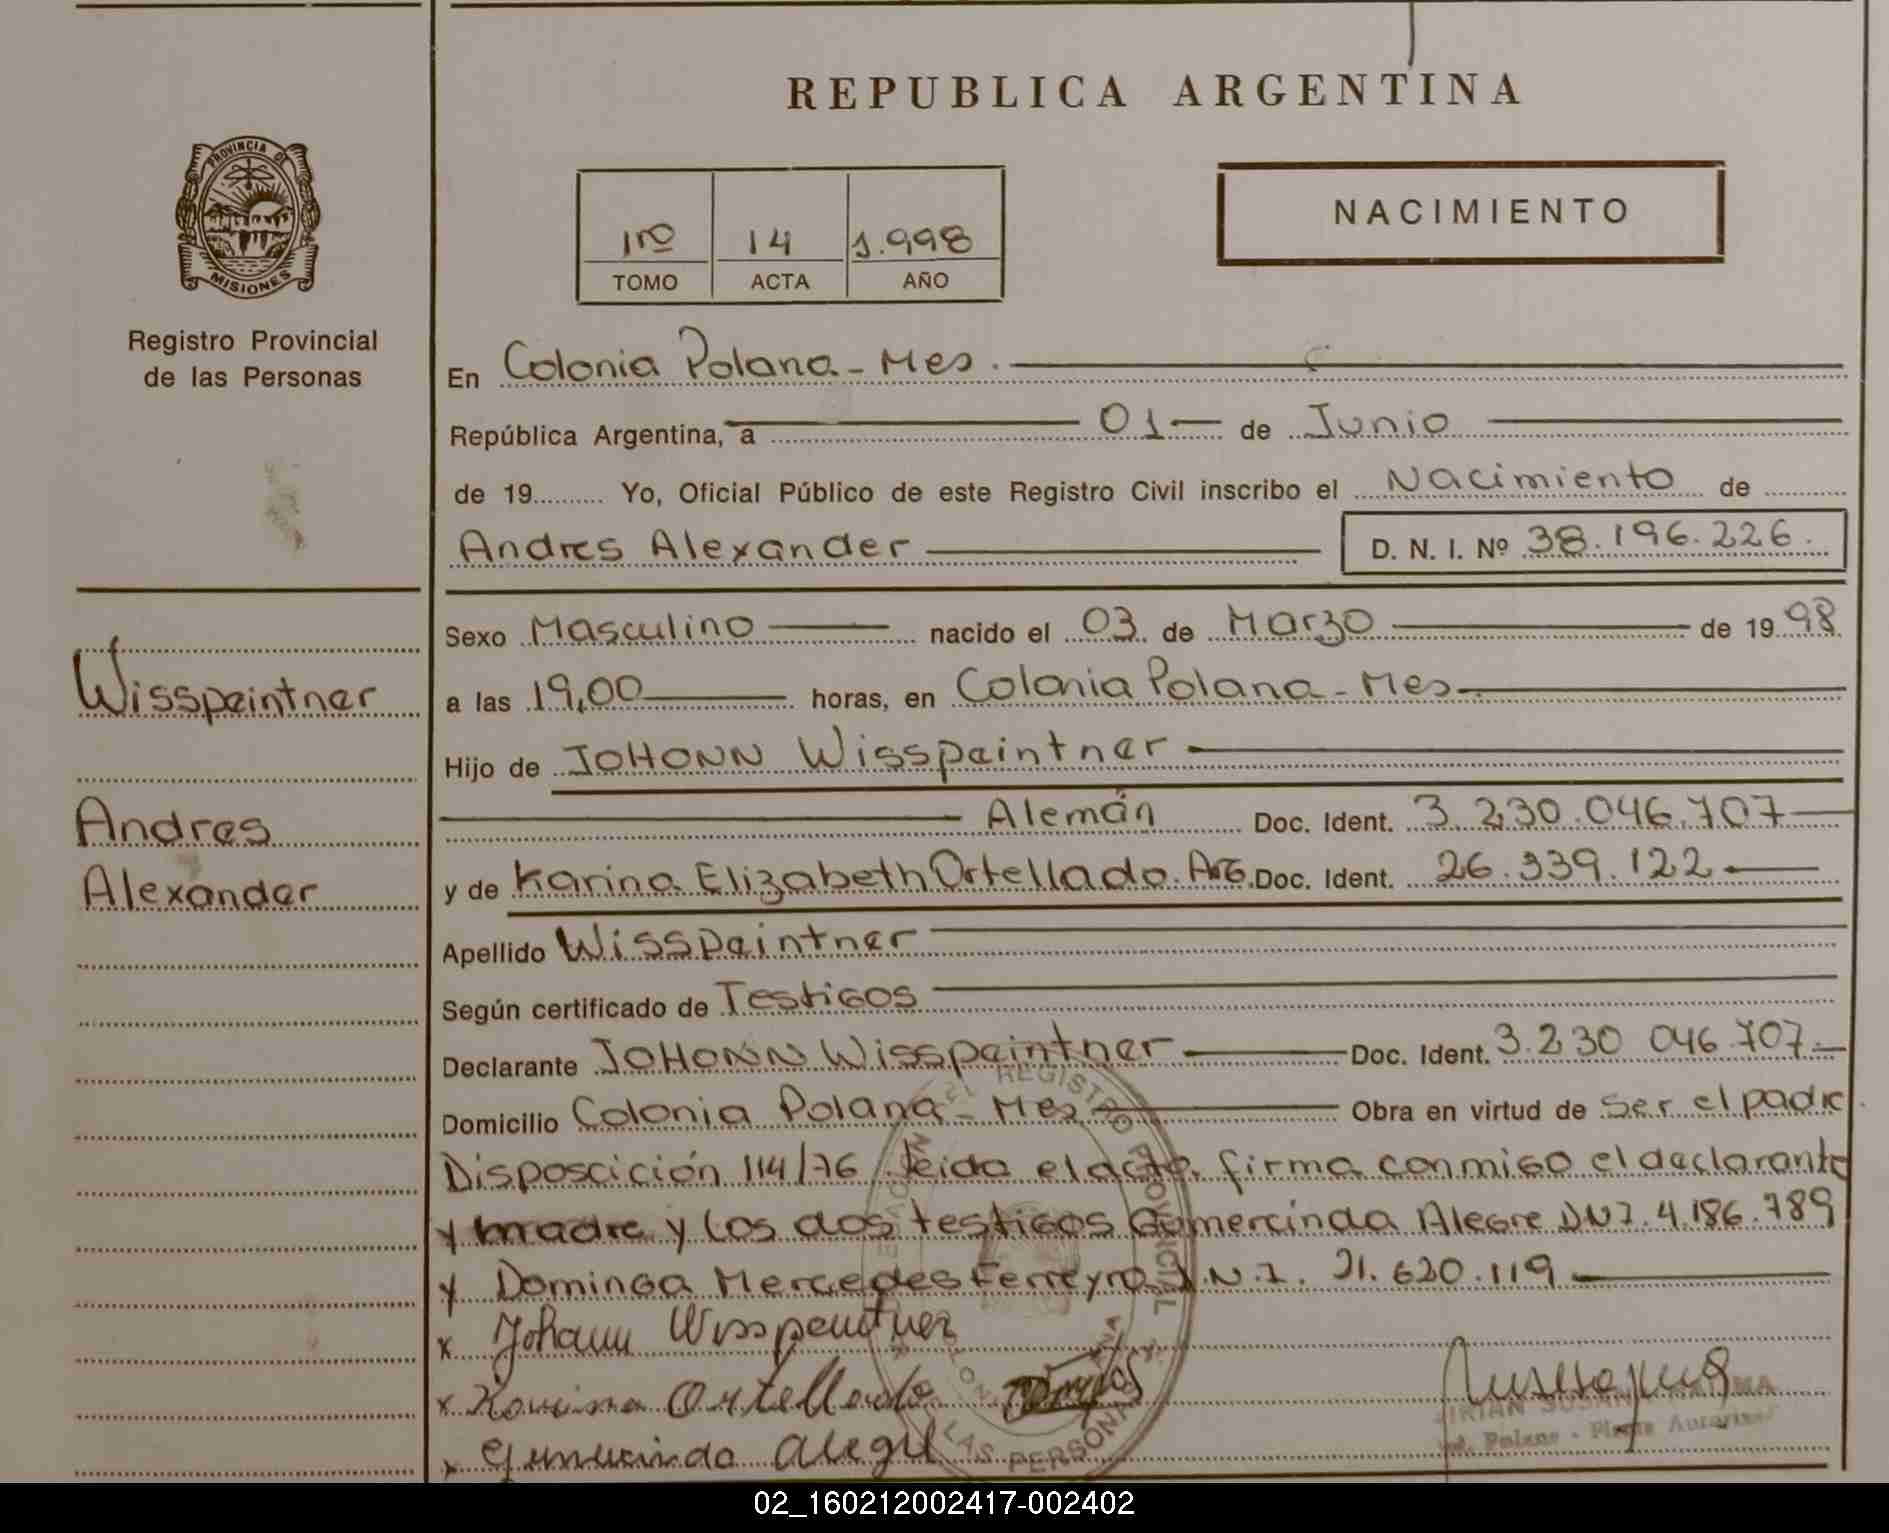 REPUBLICA ARGENTINA
PROVINCIA DE
MISIONES
Registro Provincial
de las Personas
1ro 14 1.998
TOMO ACTA AÑO
NACIMIENTO
En Colonia Polana - Mes.
República Argentina, a 01 de Junio
de 19 Yo, Oficial Público de este Registro Civil inscribo el Nacimiento de
Andres Alexander D. N. I. Nº 38.196.226.
Sexo Masculino nacido el 03 de Marzo de 19 98
a las 19,00 horas, en Colonia Polana - Mes
Hijo de JOHONN Wisspeintner
Alemán Doc. Ident. 3.230.046.707
y de Karina Elizabeth Ortellado. ArG. Doc. Ident. 26.339.122
Apellido Wisspeintner
Según certificado de TestiGos
Declarante JOHONN Wisspeintner Doc. Ident. 3.230 046.707
Domicilio Colonia Polana - Mes Obra en virtud de ser el padre
Disposcición 114/76 leida el acta, firma conmiGo el declarante
y madre y los dos testiGos Gumercinda AleGre DNI. 4.186.789
y DominGa Mercedes Ferreyra D.N.I. 21.620.119
x Johann Wisspeintner
x Karina Ortellado
x Gumercinda Alegre
Wisspeintner
Andres
Alexander
REGISTRO PROVINCIAL
LAS PERSONAS
02_160212002417-002402